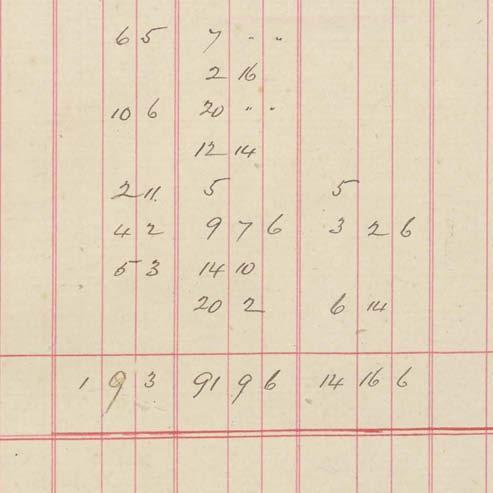 6 5 7 " "
2 16
10 6 20 " "
12 14
2 11. 5 5
4 2 9 7 6 3 2 6
5 3 14 10
20 2 6 14
1 9 3 91 9 6 14 16 6